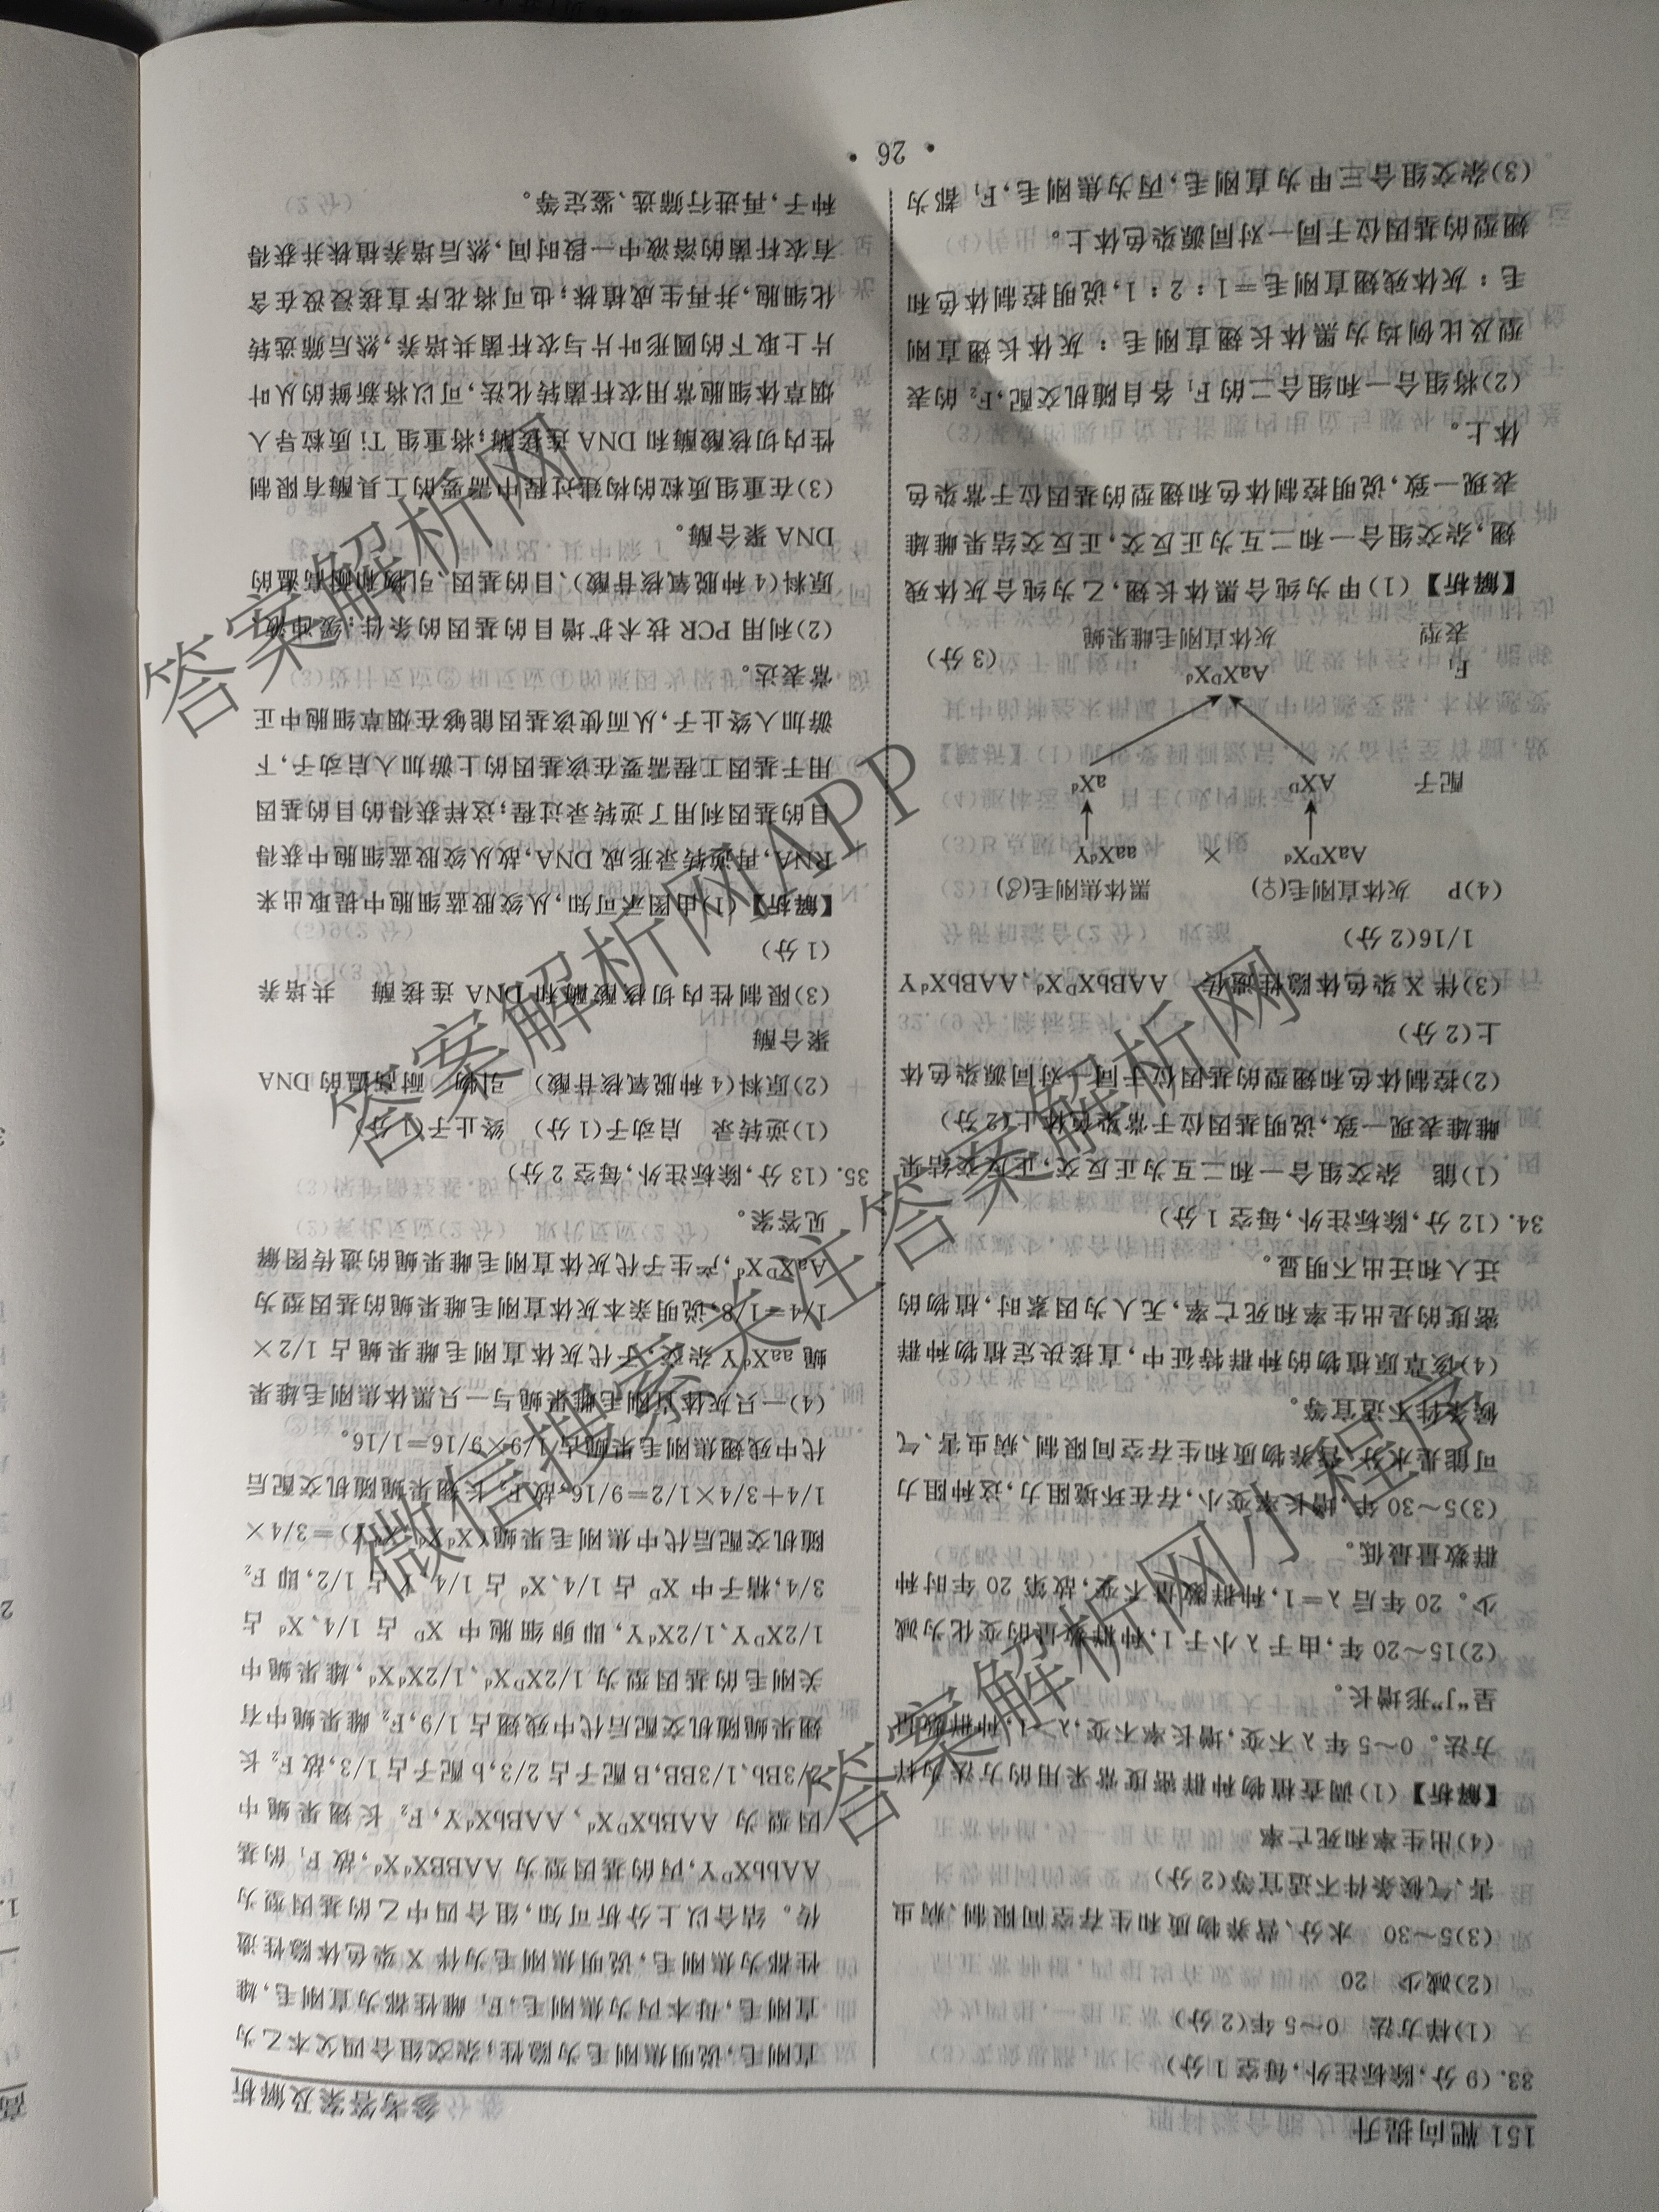 151靶向提升
参考答案及解析
33. (9分,除标注外,每空1分)
(1)样方法 0~5年(2分)
(2)减少 20
(3)5~30 水分、营养物质和生存空间限制、病虫
害、气候条件不适宜等(2分)
(4)出生率和死亡率
【解析】(1)调查植物种群密度常采用的方法为样
方法。0~5年λ不变,增长率不变,λ>1,种群数量
呈“J”形增长。
(2)15~20年,由于λ小于1,种群数量的变化为减
少。20年后λ=1,种群数量不变,故第20年时种
群数量最低。
(3)5~30年,增长率变小,存在环境阻力,这种阻力
可能是水分、营养物质和生存空间限制、病虫害、气
候条件不适宜等。
(4)该草原植物的种群特征中,直接决定植物种群
密度的是出生率和死亡率,无人为因素时,植物的
迁入和迁出不明显。
34. (12分,除标注外,每空1分)
(1)能 杂交组合一和二互为正反交,正反交结果
雌雄表现一致,说明基因位于常染色体上(2分)
(2)控制体色和翅型的基因位于同一对同源染色体
上(2分)
(3)伴X染色体隐性遗传 AABbXᴰXᵈ、AABbXᵈY
1/16(2分)
(4)P 灰体直刚毛(♀) 黑体焦刚毛(♂)
AaXᴰXᵈ × aaXᵈY
配子 AXᴰ aXᵈ
F₁ AaXᴰXᵈ
表型 灰体直刚毛雌果蝇 (3分)
【解析】(1)甲为纯合黑体长翅,乙为纯合灰体残
翅,杂交组合一和二互为正反交,正反交结果雌雄
表现一致,说明控制体色和翅型的基因位于常染色
体上。
(2)将组合一和组合二的F₁各自随机交配,F₂的表
型及比例均为黑体长翅直刚毛:灰体长翅直刚
毛:灰体残翅直刚毛=1:2:1,说明控制体色和
翅型的基因位于同一对同源染色体上。
(3)杂交组合三甲为直刚毛,丙为焦刚毛,F₁都为
直刚毛,说明焦刚毛为隐性;杂交组合四父本乙为
直刚毛,母本丙为焦刚毛,F₁雌性都为直刚毛,雄
性都为焦刚毛,说明焦刚毛为伴X染色体隐性遗
传。结合以上分析可知,组合四中乙的基因型为
AAbbXᴰY,丙的基因型为AABBXᵈXᵈ,故F₁的基
因型为AABbXᴰXᵈ、AABbXᵈY,F₂长翅果蝇中
2/3Bb、1/3BB,B配子占2/3,b配子占1/3,故F₂长
翅果蝇随机交配后代中残翅占1/9,F₂雌果蝇中有
关刚毛的基因型为1/2XᴰXᵈ、1/2XᵈXᵈ,雄果蝇中
1/2XᴰY、1/2XᵈY,即卵细胞中Xᴰ占1/4、Xᵈ占
3/4,精子中Xᴰ占1/4、Xᵈ占1/4、Y占1/2,即F₂
随机交配后代中焦刚毛果蝇(XᵈXᵈ、XᵈY)=3/4×
1/4+3/4×1/2=9/16,故F₂长翅果蝇随机交配后
代中残翅焦刚毛果蝇占1/9×9/16=1/16。
(4)一只灰体直刚毛雌果蝇与一只黑体焦刚毛雄果
蝇aaXᵈY杂交,子代灰体直刚毛雌果蝇占1/2×
1/4=1/8,说明亲本灰体直刚毛雌果蝇的基因型为
AaXᴰXᵈ,产生子代灰体直刚毛雌果蝇的遗传图解
见答案。
35. (13分,除标注外,每空2分)
(1)逆转录 启动子(1分) 终止子(1分)
(2)原料(4种脱氧核苷酸) 引物 耐高温的DNA
聚合酶
(3)限制性内切核酸酶和DNA连接酶 共培养
(1分)
【解析】(1)由图示可知,从绞股蓝细胞中提取出来
RNA,再逆转录形成DNA,故从绞股蓝细胞中获得
目的基因利用了逆转录过程;这样获得的目的基因
用于基因工程需要在该基因的上游加入启动子,下
游加入终止子,从而使该基因能够在烟草细胞中正
常表达。
(2)利用PCR技术扩增目的基因的条件:缓冲液、
原料(4种脱氧核苷酸)、目的基因、引物和耐高温的
DNA聚合酶。
(3)在重组质粒的构建过程中需要的工具酶有限制
性内切核酸酶和DNA连接酶;将重组Ti质粒导入
烟草体细胞常用农杆菌转化法,可以将新鲜的从叶
片上取下的圆形叶片与农杆菌共培养,然后筛选转
化细胞,并再生成植株;也可将花序直接浸没在含
有农杆菌的溶液中一段时间,然后培养植株并获得
种子,再进行筛选、鉴定等。
· 26 ·
答案解析网
答案解析网APP
微信搜索关注答案解析网
答案解析网小程序